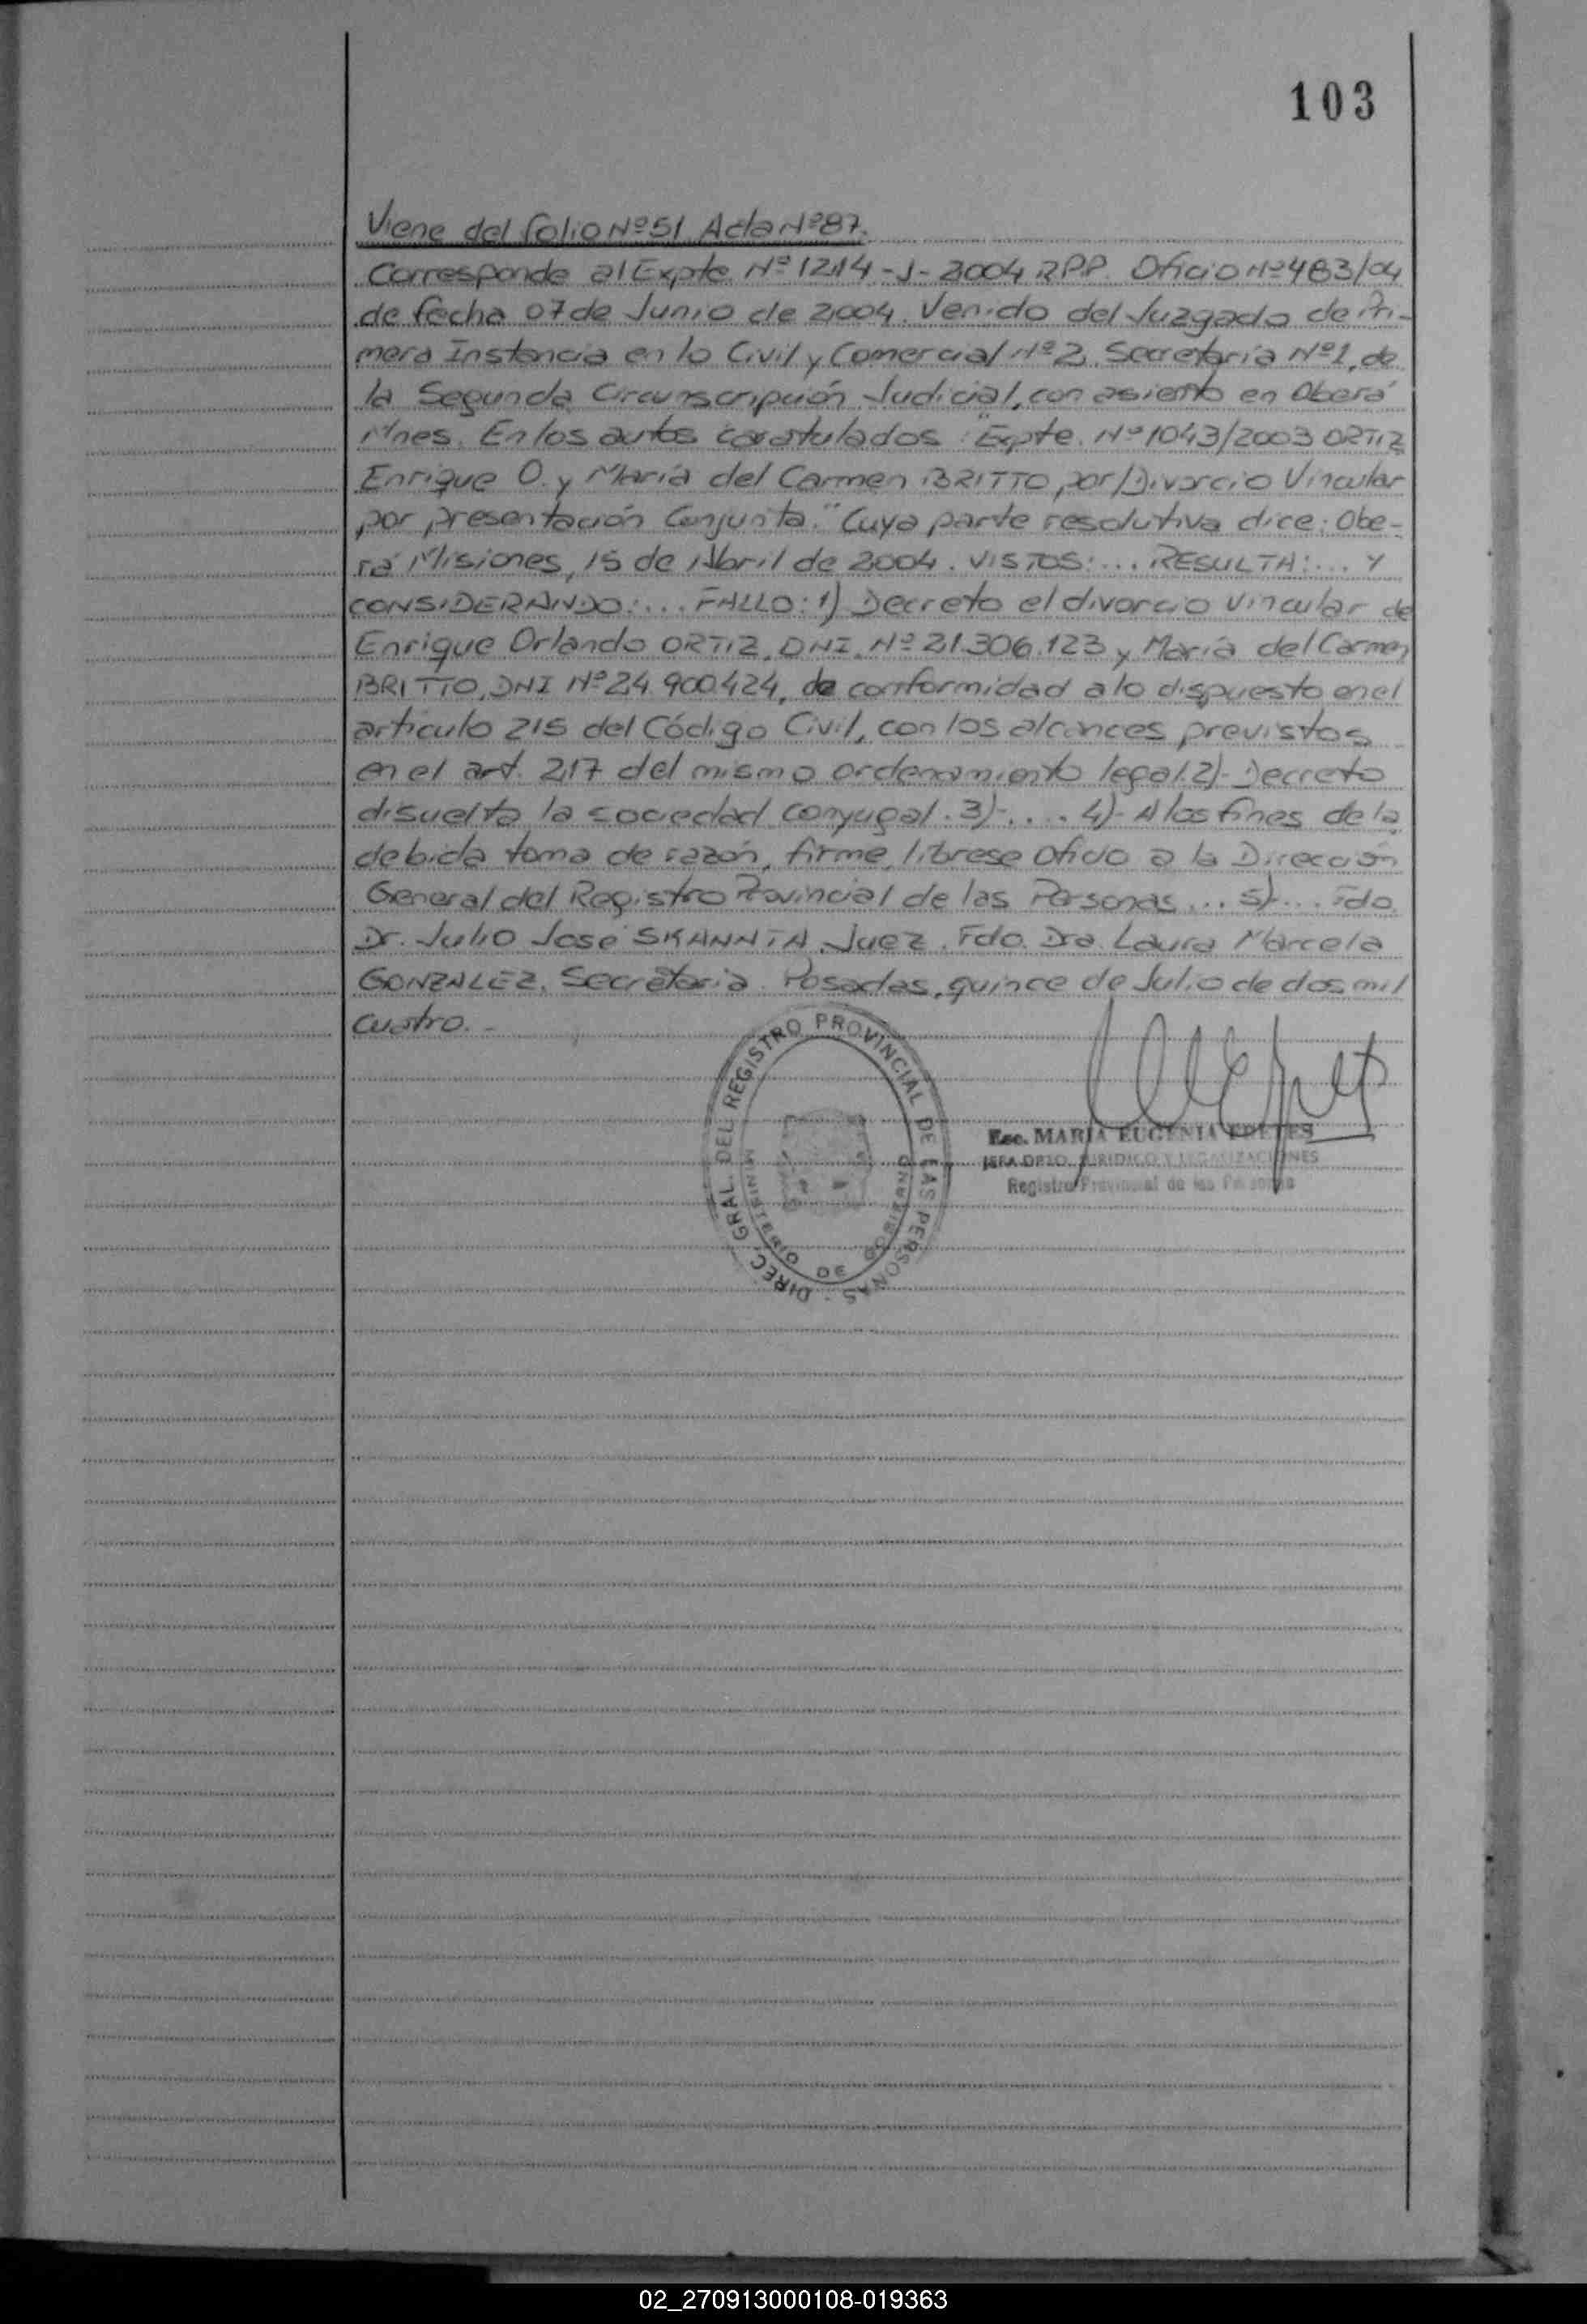 103
Viene del folio Nº 51 Acta Nº 87.
Corresponde al Expte. Nº 1214-J-2004 RPP. Oficio Nº 483/04
de fecha 07 de Junio de 2004. Venido del Juzgado de Pri-
mera Instancia en lo Civil y Comercial Nº 2, Secretaría Nº 1, de
la Segunda Circunscripción Judicial, con asiento en Oberá
Mnes. En los autos caratulados: "Expte. Nº 1043/2003 ORTIZ
Enrique O. y María del Carmen BRITTO por/Divorcio Vincular
por presentación Conjunta." Cuya parte resolutiva dice: Obe-
rá Misiones, 15 de Abril de 2004. VISTOS:... RESULTA:... Y
CONSIDERANDO:... FALLO: 1) Decreto el divorcio vincular de
Enrique Orlando ORTIZ, DNI. Nº 21.306.123 y María del Carmen
BRITTO, DNI Nº 24.900.424, de conformidad a lo dispuesto en el
artículo 215 del Código Civil, con los alcances previstos
en el art. 217 del mismo ordenamiento legal. 2)- Decreto
disuelta la sociedad conyugal. 3)-.... 4)- A los fines de la
debida toma de razón, firme, líbrese Oficio a la Dirección
General del Registro Provincial de las Personas... 5)-... Fdo.
Dr. Julio José SKANNTA, Juez. Fdo. Dra. Laura Marcela
GONZALEZ, Secretaria. Posadas, quince de Julio de dos mil
cuatro.-
DIREC. GRAL. DEL REGISTRO PROVINCIAL DE LAS PERSONAS -
MINISTERIO DE GOBIERNO
Esc. MARÍA EUGENIA
JEFA DPTO. JURIDICO Y LEGALIZACIONES
Registro Provincial de las Personas
02_270913000108-019363